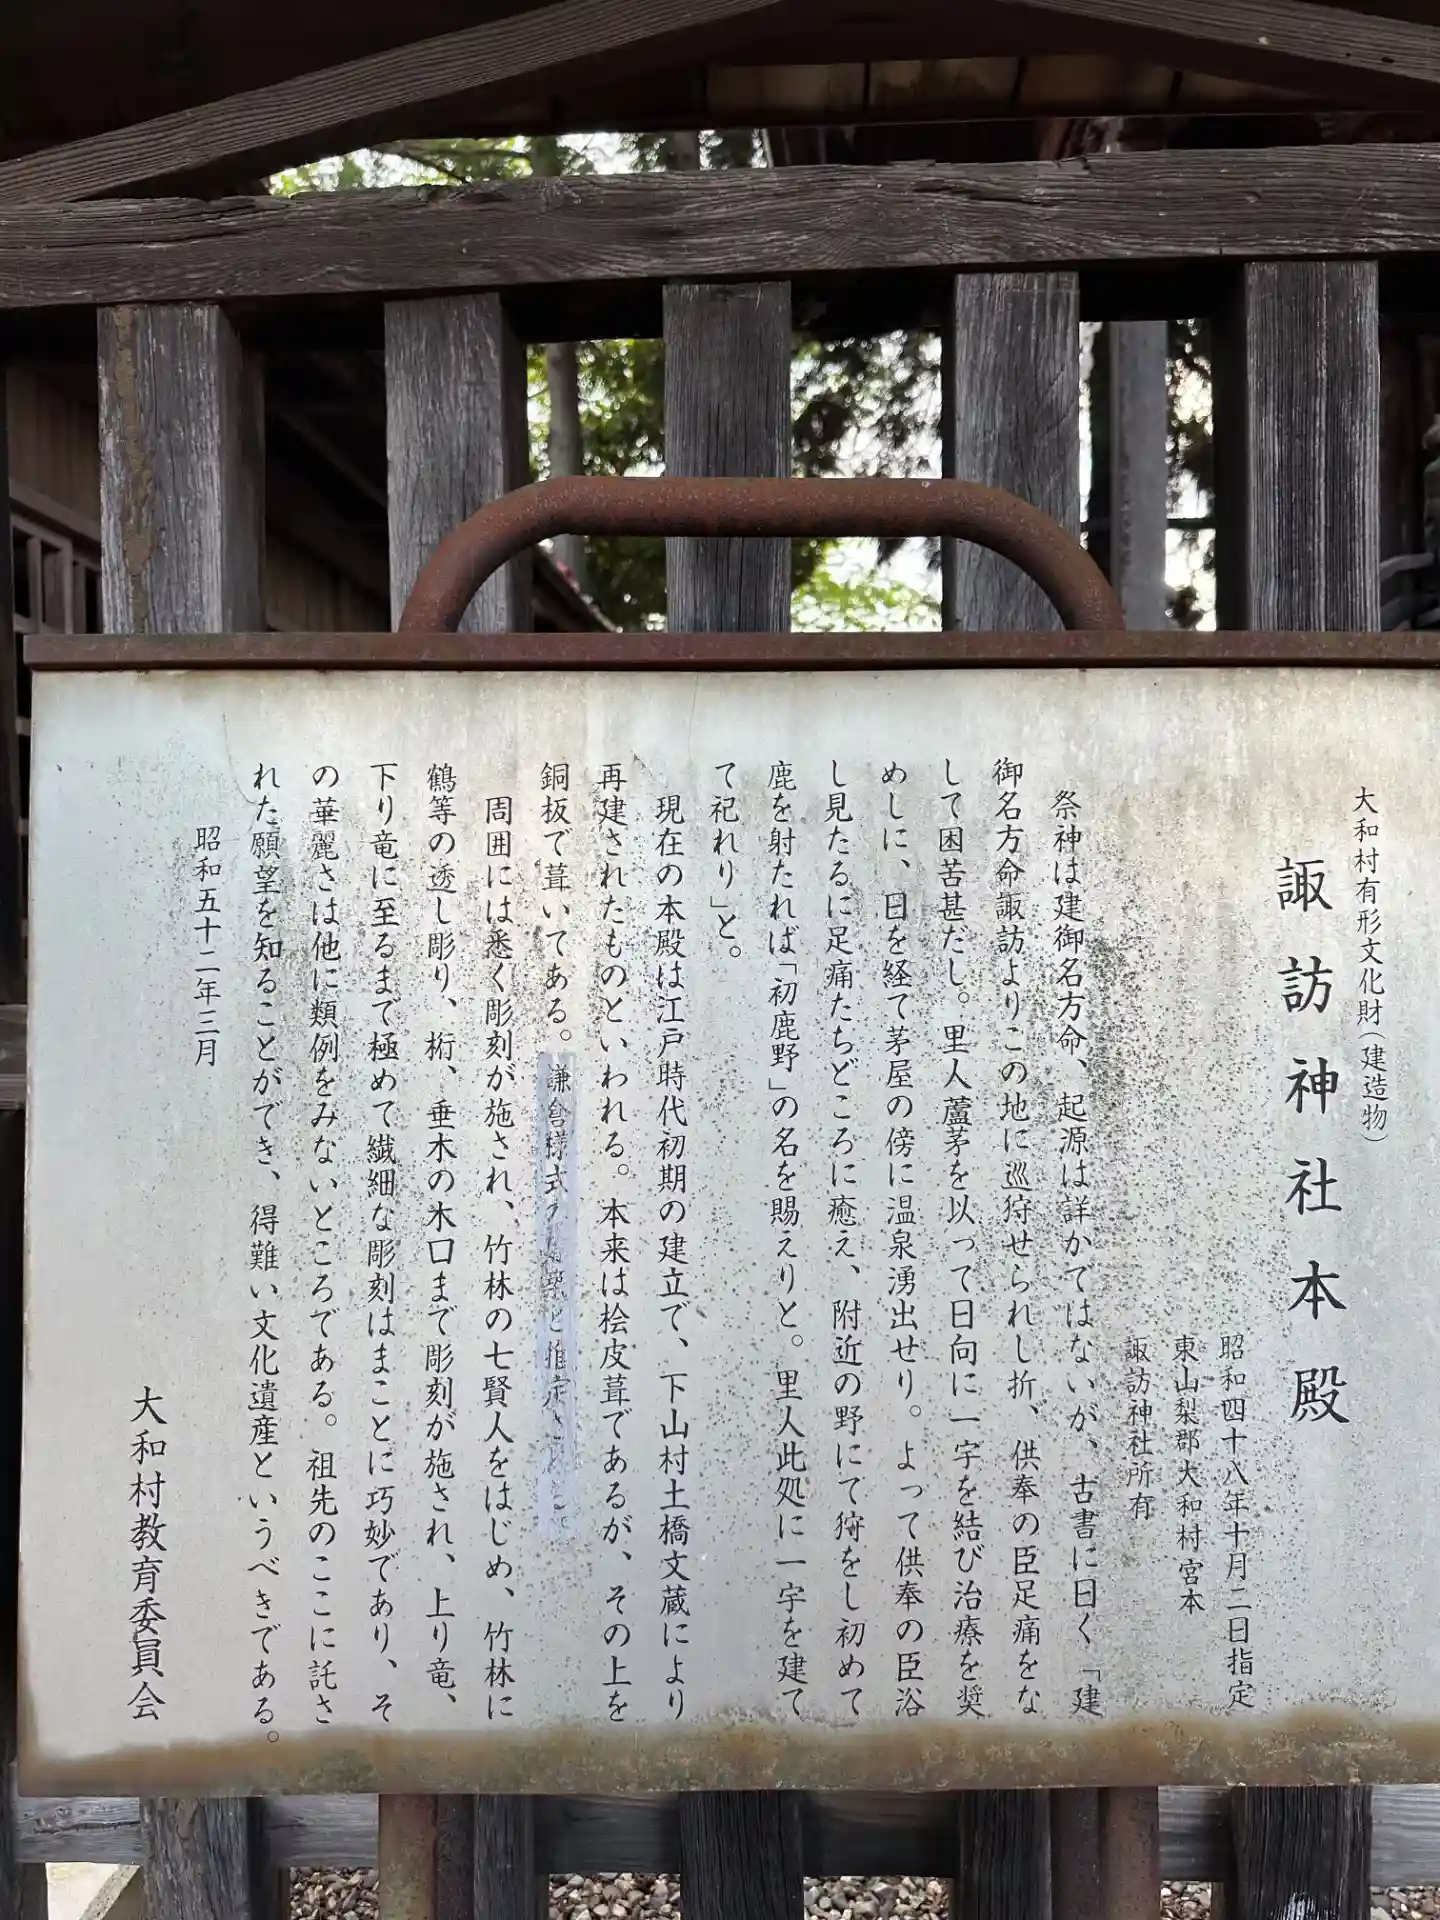 大和村有形文化財(建造物)
諏訪神社本殿
昭和四十八年十月二日指定
東山梨郡大和村宮本
諏訪神社所有
祭神は建御名方命、起源は詳かではないが、古書に曰く「建
御名方命諏訪よりこの地に巡狩せられし折、供奉の臣足痛をな
して困苦甚だし。里人蘆茅を以って日向に一宇を結び治療を奨
めしに、日を経て茅屋の傍に温泉湧出せり。よって供奉の臣浴
し見たるに足痛たちどころに癒え、附近の野にて狩をし初めて
鹿を射たれば「初鹿野」の名を賜えりと。里人此処に一宇を建て
て祀れり」と。
現在の本殿は江戸時代初期の建立で、下山村土橋文蔵により
再建されたものといわれる。本来は桧皮葺であるが、その上を
銅板で葺いてある。鎌倉様式の建築と推定される。
周囲には悉く彫刻が施され、竹林の七賢人をはじめ、竹林に
鶴等の透し彫り、桁、垂木の木口まで彫刻が施され、上り竜、
下り竜に至るまで極めて繊細な彫刻はまことに巧妙であり、そ
の華麗さは他に類例をみないところである。祖先のここに託さ
れた願望を知ることができ、得難い文化遺産というべきである。
昭和五十二年三月
大和村教育委員会